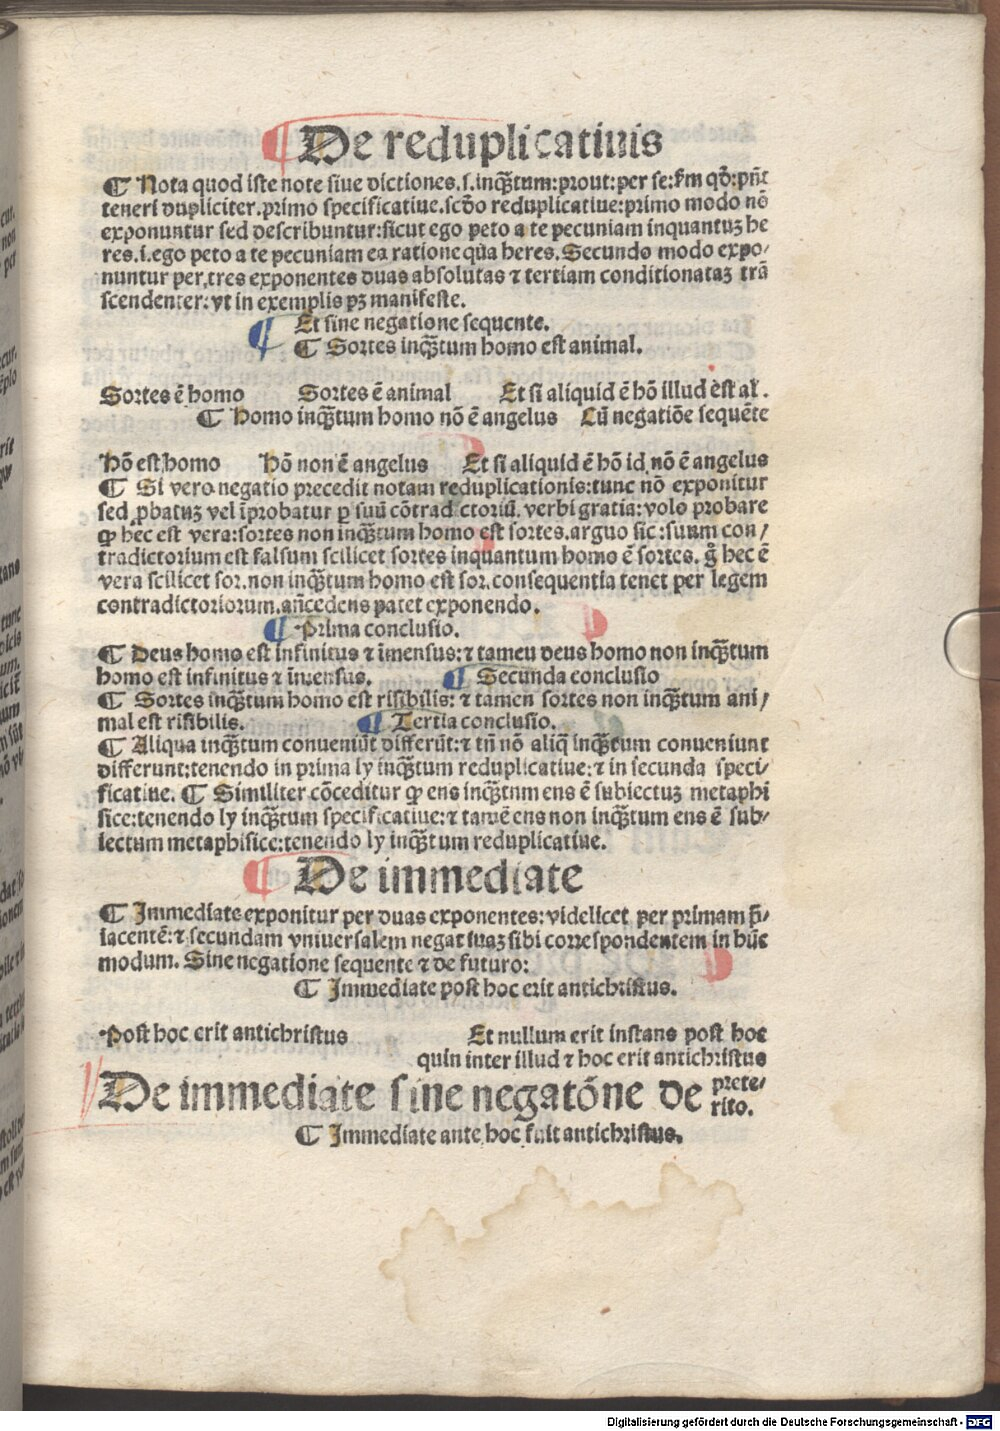 De reduplicatiuis
¶ Nota quod iste note siue dictiones.s.inqꝫtum:prout:per se:ẜm qď:pn̄t
teneri dupliciter.primo specificatiue.scďo reduplicatiue:primo modo nō
exponuntur sed describuntur:sicut ego peto a te pecuniam inquantuꝫ he
res.i.ego peto a te pecuniam ea ratione qua heres.Secundo modo expo⸗
nuntur per tres exponentes duas absolutas ⁊ tertiam conditionataꝫ trā
scendenter:vt in exemplis pꝫ manifeste.
Et sine negatione sequente.
¶ Sortes inqꝫtum homo est animal.
Sortes ē homo Sortes ē animal Et si aliquid ē hō illud est al̄.
¶ Homo inqꝫtum homo nō ē angelus Cū negatiōe sequēte
Hō est homo Hō non ē angelus Et si aliquid ē hō id nō ē angelus
¶ Si vero negatio precedit notam reduplicationis:tunc nō exponitur
sed ꝓbatuꝫ vel īprobatur ꝑ suū cōtradictoriū.verbi gratia:volo probare
ꝙ hec est vera:sortes non inqꝫtum homo est sortes.arguo sic:suum con⸗
tradictorium est falsum scilicet sortes inquantum homo ē sortes.g̊ hec ē
vera scilicet sor.non inqꝫtum homo est sor.consequentia tenet per legem
contradictoriorum.an̄cedens patet exponendo.
Prima conclusio.
¶ Deus homo est infinitus ⁊ īmensus:⁊ tameu deus homo non inqꝫtum
homo est infinitus ⁊ īmensus. Secunda conclusio
¶ Sortes inqꝫtum homo est risibilis:⁊ tamen sortes non inqꝫtum ani⸗
mal est risibilis. Tertia conclusio.
¶ Aliqua inqꝫtum conueniūt differūt:⁊ tn̄ nō aliq̄ inqꝫtum conueniunt
differunt:tenendo in prima ly inqꝫtum reduplicatiue:⁊ in secunda speci⸗
ficatiue. ¶ Similiter cōceditur ꝙ ens inqꝫtum ens ē subiectuꝫ metaphi
sice:tenendo ly inqꝫtum specificatiue:⁊ tamē ens non inqꝫtum ens ē sub⸗
iectum metaphisice:tenendo ly inqꝫtum reduplicatiue.
De immediate
¶ Immediate exponitur per duas exponentes:videlicet per primam p̄⸗
iacentē:⁊ secundam vniuersalem negatiuaꝫ sibi correspondentem in hūc
modum. Sine negatione sequente ⁊ de futuro:
¶ Immediate post hoc erit antichristus.
Post hoc erit antichristus Et nullum erit instans post hoc
quin inter illud ⁊ hoc erit antichristus
De immediate sine negatōne de prete⸗
rito.
¶ Immediate ante hoc fuit antichristus.
Digitalisierung gefördert durch die Deutsche Forschungsgemeinschaft - DFG